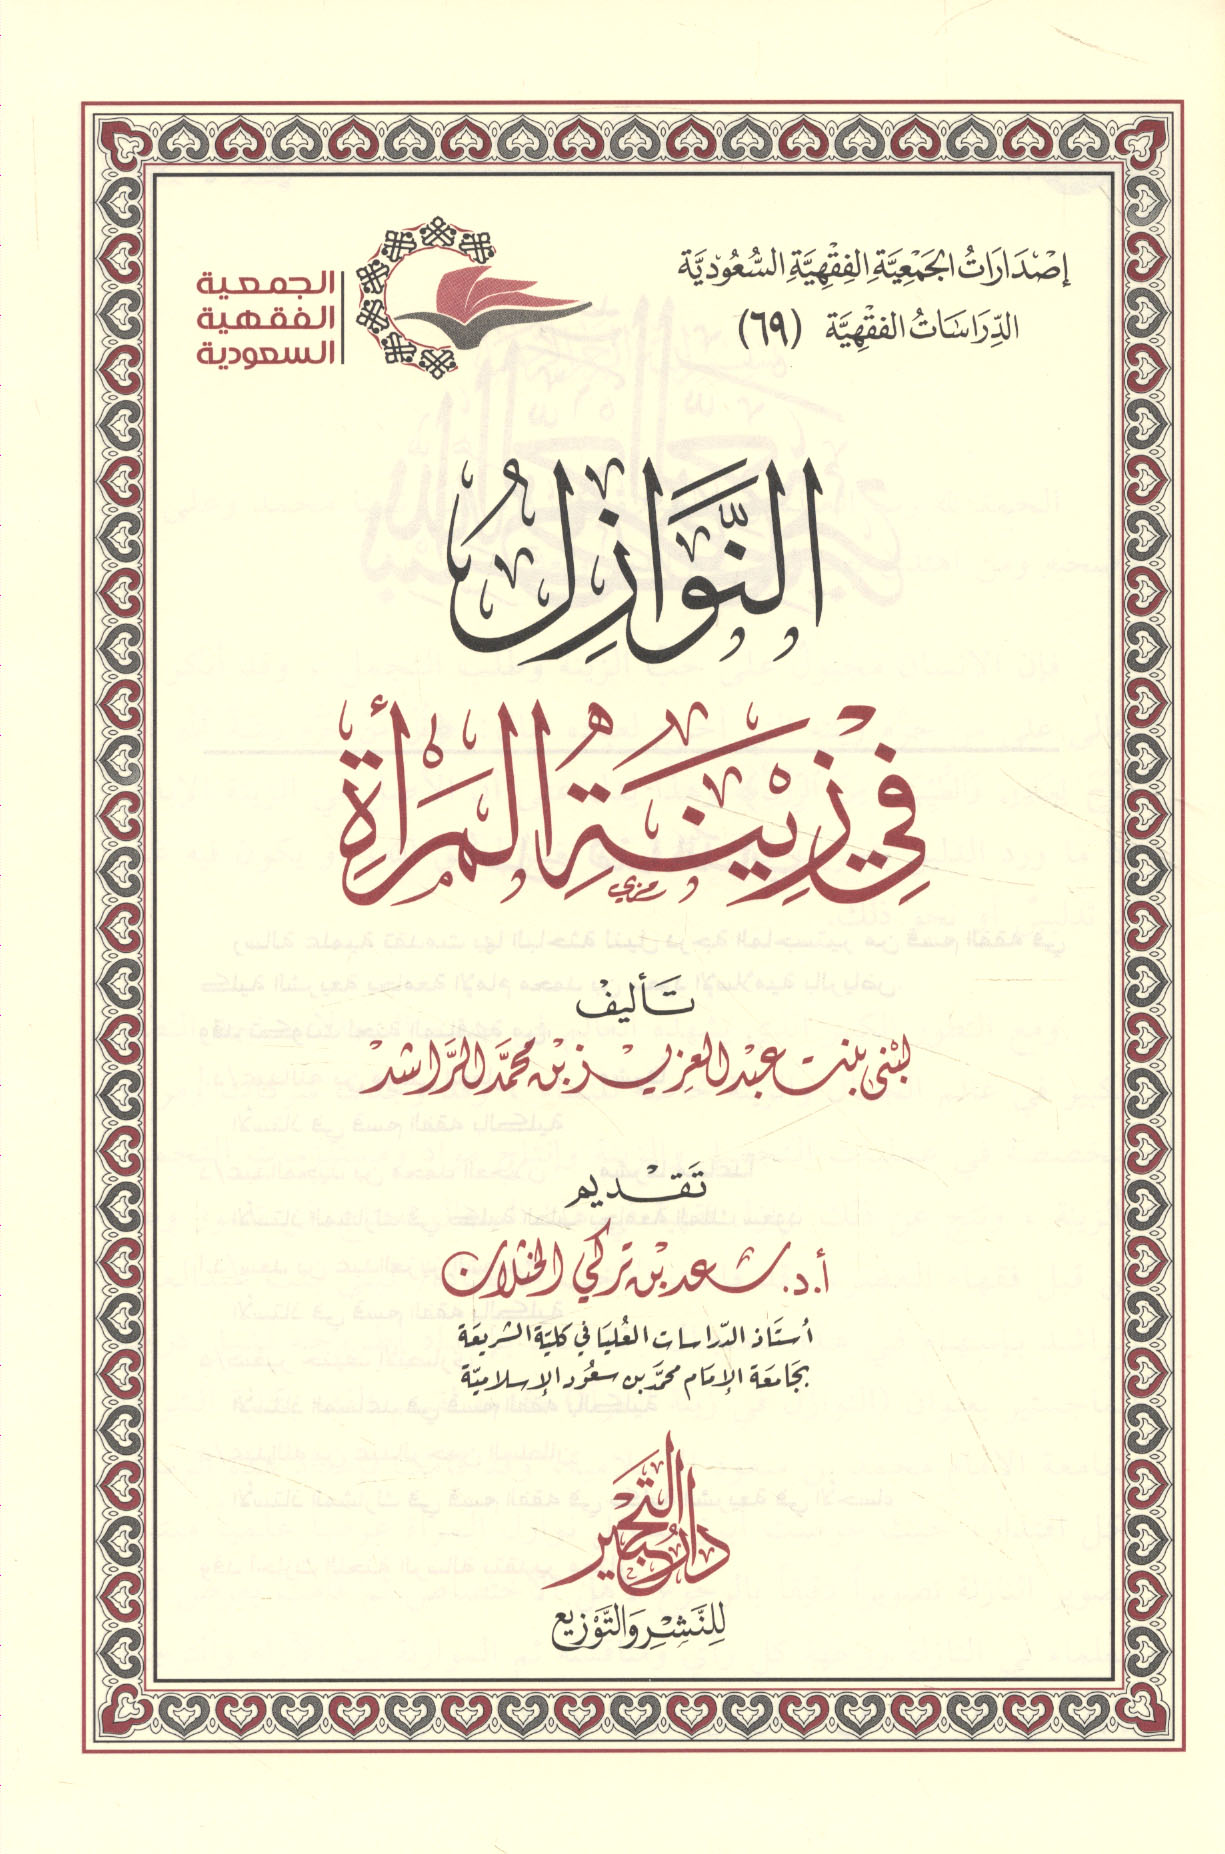 إصْدَارَاتُ الجَمْعِيَّةِ الفِقْهِيَّةِ السُّعُوْدِيَّة
الدِّرَاسَاتُ الفِقْهِيَّة (٦٩)
الجمعية
الفقهية
السعودية
النَّوَازِلُ
فِيْ زِيْنَةِ المَرْأَةِ
رمزي
تَأليفْ
لبْنى بنت عبد العزيز بْن محمَّد الرَّاشد
تَقْديم
أ.د. سَعد بْن تركي الخثلان
أستَاذ الدّراسات العُليَا في كليَّة الشريعَة
بجَامعَة الإمَام محمَّد بن سعُود الإسلاميَّة
دار التحبير
للنَّشْرِ وَالتَّوْزِيع